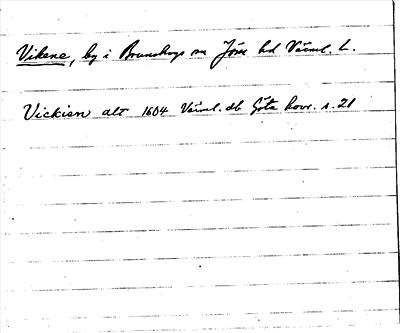 Vikene, by i Brunskogs sn Jöss hd Värml. L.
Vickien alt 1604 Värml. db Göta hovr. s. 21